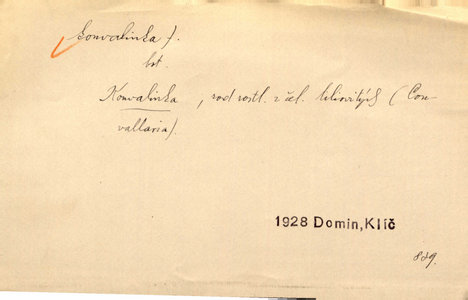 konvalinka f.
bot.
Konvalinka, rod rostl. z čel. liliovitých (Con-
vallaria).
1928 Domin, Klíč
829.